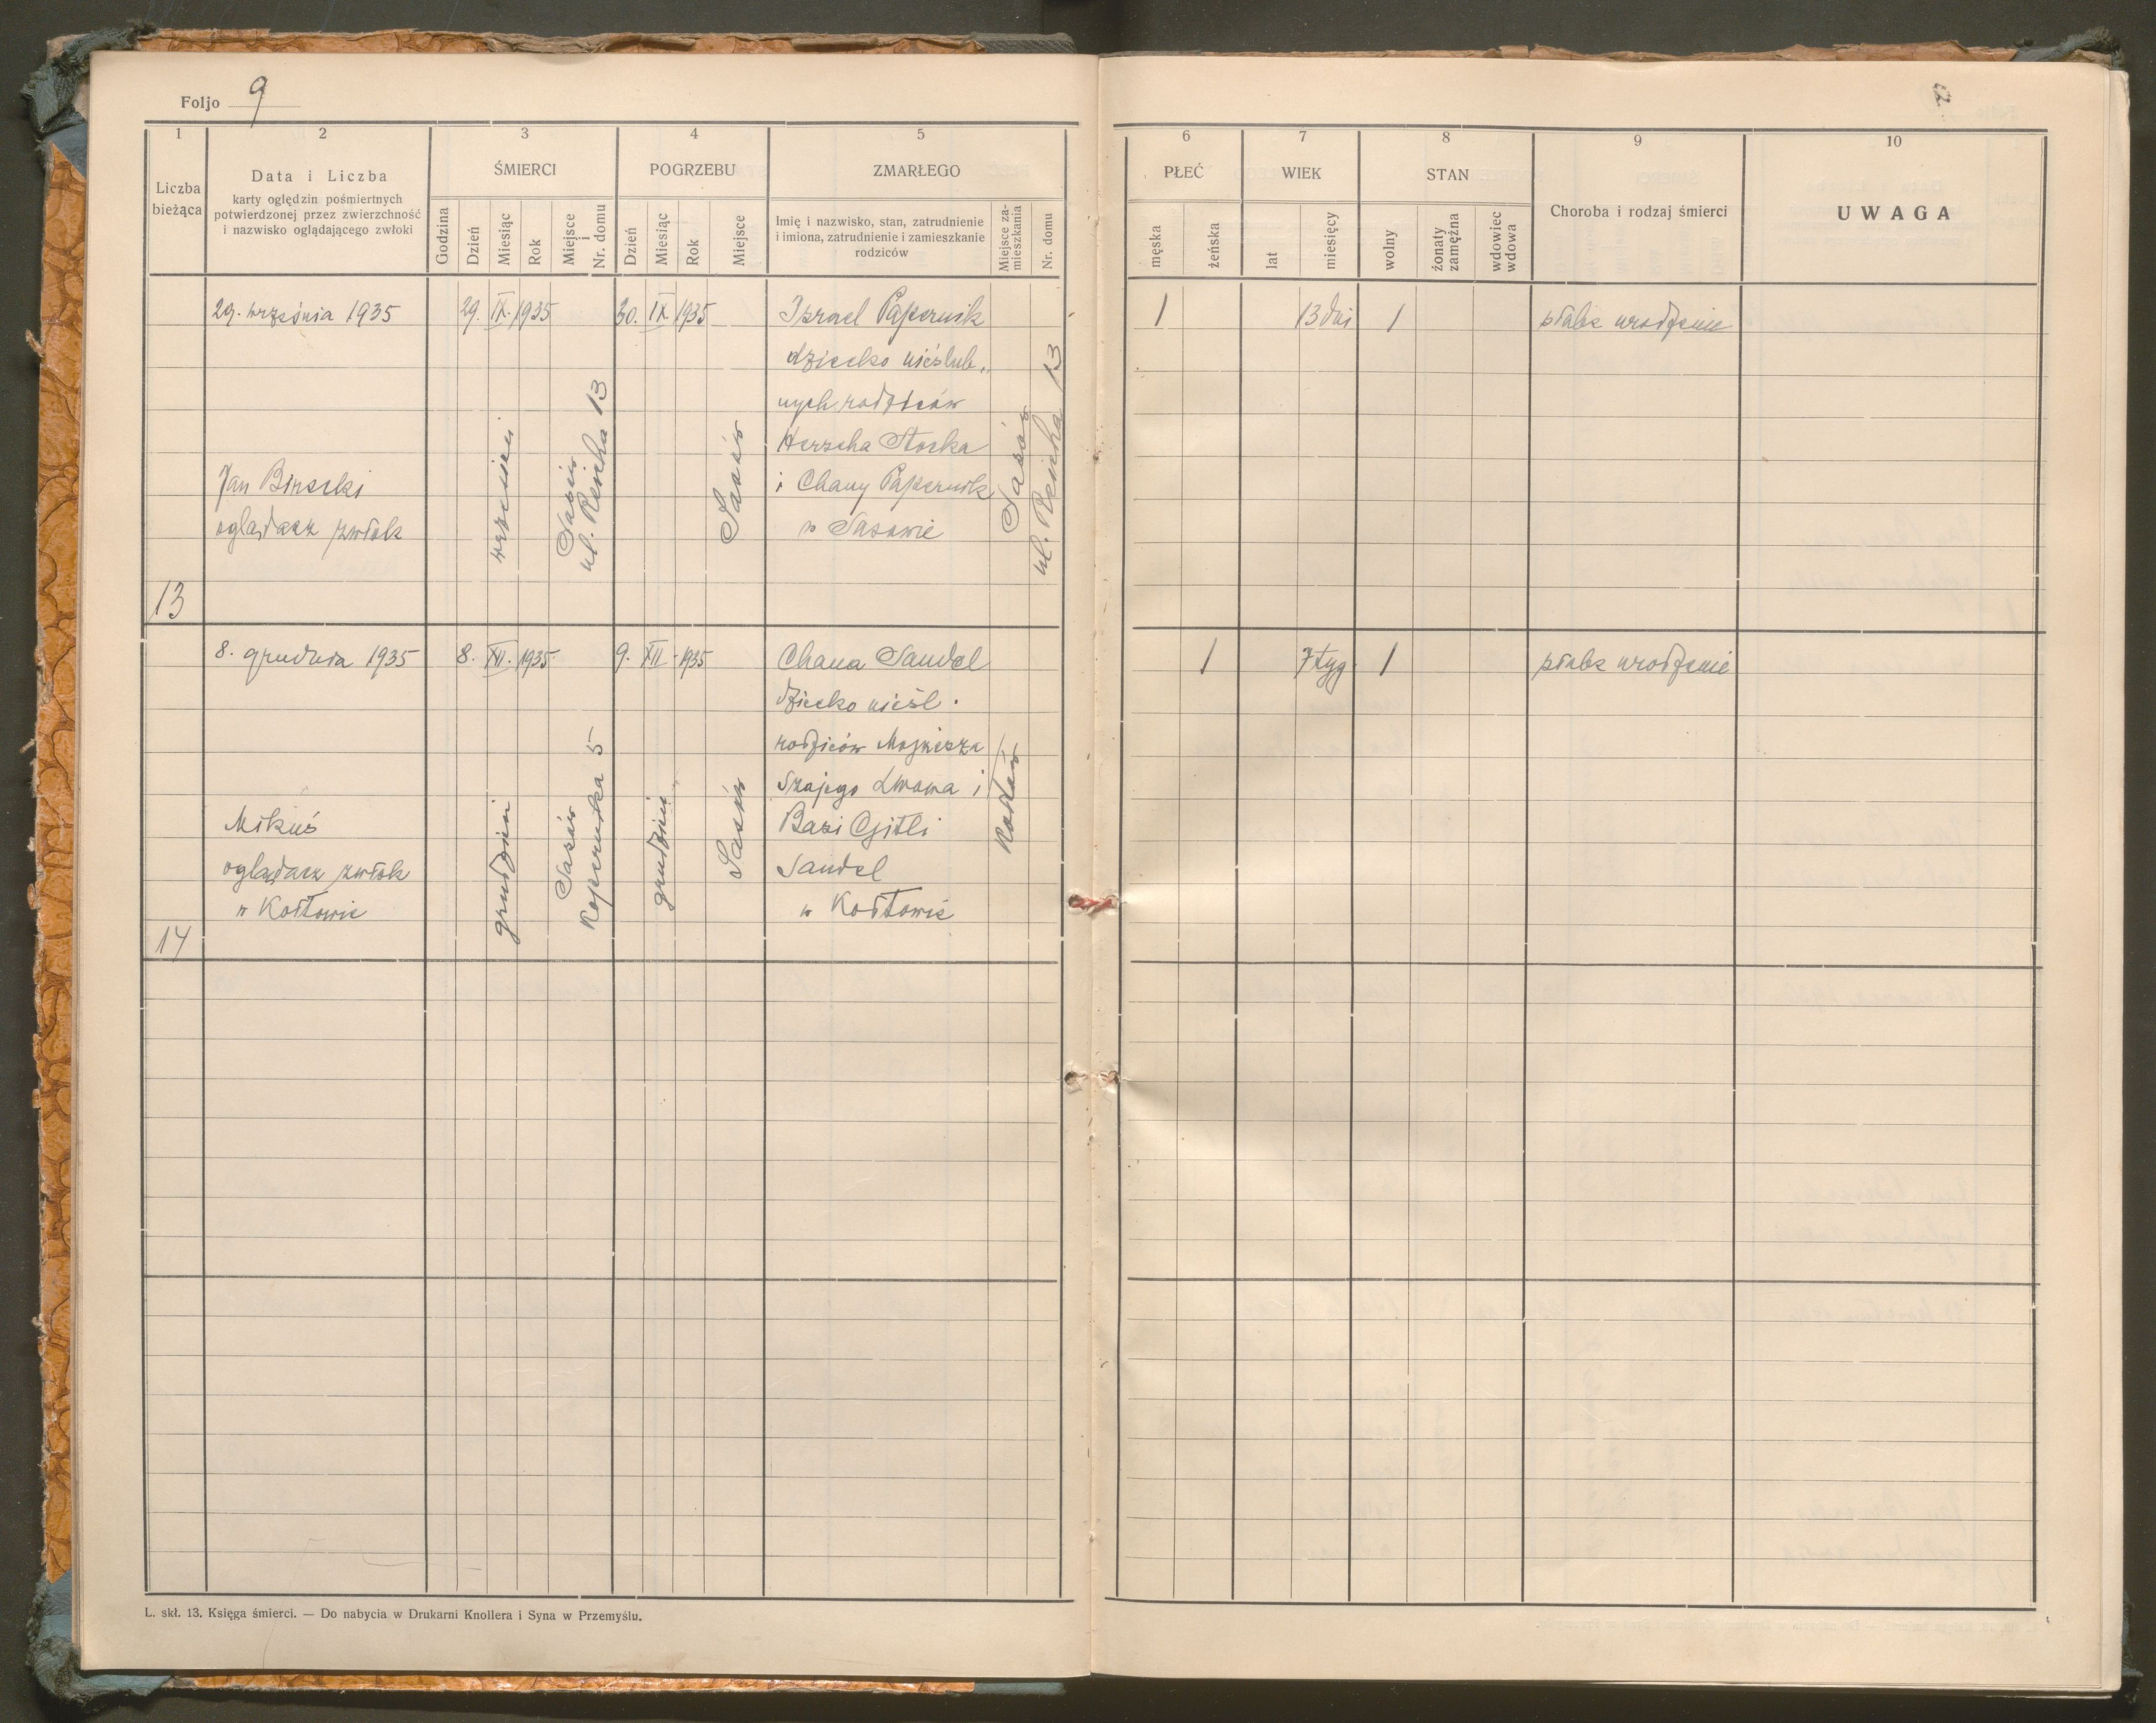 Foljo 9
1 2 3 4 5 6 7 8 9 10
Liczba bieżąca
Data i Liczba
karty oględzin pośmiertnych
potwierdzonej przez zwierzchność
i nazwisko oglądającego zwłoki
ŚMIERCI
Godzina
Dzień
Miesiąc
Rok
Miejsce i Nr. domu
POGRZEBU
Dzień
Miesiąc
Rok
Miejsce
ZMARŁEGO
Imię i nazwisko, stan, zatrudnienie
i imiona, zatrudnienie i zamieszkanie
rodziców
Miejsce za-
mieszkania
Nr. domu
PŁEĆ
męska
żeńska
WIEK
lat
miesięcy
STAN
wolny
żonaty
zamężna
wdowiec
wdowa
Choroba i rodzaj śmierci
UWAGA
13
29. września 1935
Jan
oglądacz zwłok
29. IX. 1935
wrzesień
Sasów
ul. Reicha 13
30. IX. 1935
Sasów
Izrael Papernik
dziecko nieślub„
nych rodziców
Herscha Storka
i Chany Papernik
w Sasowie
Sasów
ul. Reicha 13
1
13 dni
1
słabe urodzenie
14
8. grudnia 1935
Mikuś
oglądacz zwłok
w Kołtowie
8. XII. 1935
grudzień
Sasów
Kopernika 5
9. XII. 1935
grudzień
Sasów
Chana Sandel
dziecko nieśl.
rodziców Mojżesza
Szajego Lwowa i
Basi Gitli
Sandel
w Kołtowie
Kołtów
1
7 tyg.
1
słabe urodzenie
L. skł. 13. Księga śmierci. — Do nabycia w Drukarni Knollera i Syna w Przemyślu.